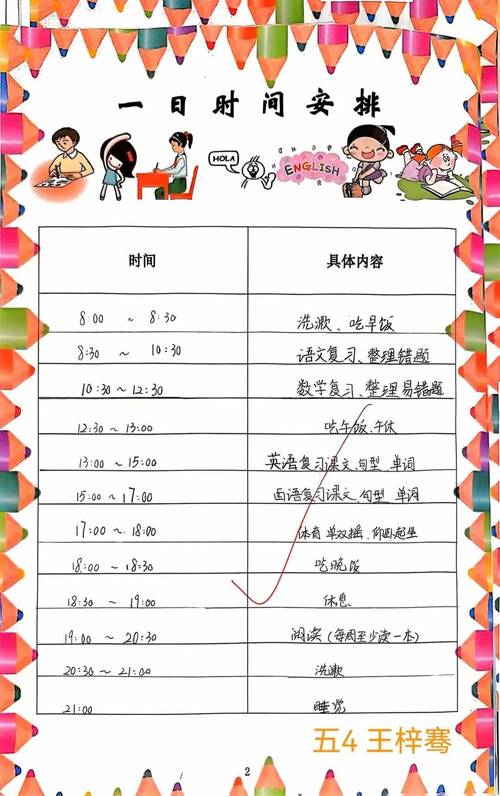 一日时间安排
HOLA
ENGLISH
时间 具体内容
8:00 ~ 8:30 洗漱、吃早饭
8:30 ~ 10:30 语文复习、整理错题
10:30 ~ 12:30 数学复习、整理易错题
12:30 ~ 13:00 吃午饭、午休
13:00 ~ 15:00 英语复习课文、句型、单词
15:00 ~ 17:00 西语复习课文、句型、单词
17:00 ~ 18:00 体育 单双摇、仰卧起坐
18:00 ~ 18:30 吃晚饭
18:30 ~ 19:00 休息
19:00 ~ 20:30 阅读(每周至少读一本)
20:30 ~ 21:00 洗漱
21:00 睡觉
五4 王梓骞
2